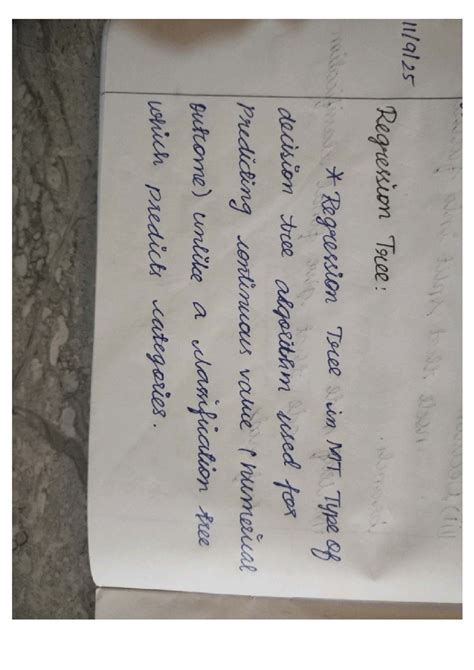 11/9/25
Regression Tree:
* Regression Tree in MT Type of
decision tree algorithm used for
Predicting continuous value (numerical
outcome) unlike a classification tree
which predicts categories.